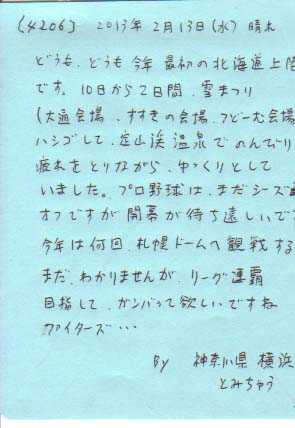 (4206) 2013年2月13日(水) 晴れ
どうも、どうも今年最初の北海道上陸
です。10日から2日間、雪まつり
(大通会場、すすきの会場、つどーむ会場
ハシゴして、定山渓温泉でのんでり
疲れをとりながら、ゆっくりとして
いました。プロ野球は、まだシーズ
オフですが開幕が待ち遠しいで
今年は何回、札幌ドームへ観戦する
まだ、わかりませんが、リーグ連覇
目指して、ガンバって欲しいですね
ファイターズ・・・
By 神奈川県 横浜
とみちゅう